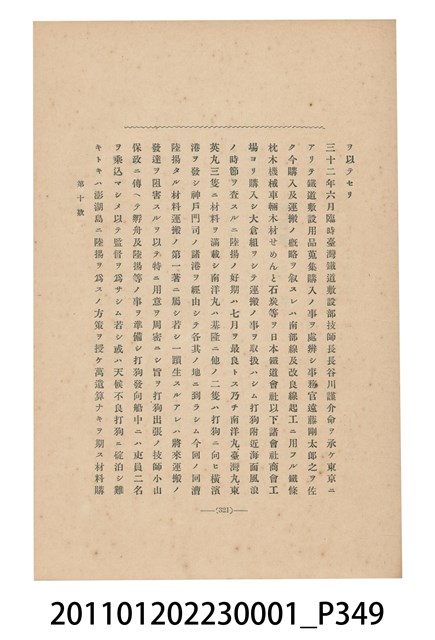 ヲ以テセリ
三十二年六月臨時臺灣鐵道敷設部技師長長谷川謹介命ヲ承ケ東京ニ
アリテ鐵道敷設用品蒐集購入ノ事ヲ處辨シ事務官遠藤剛太郎之ヲ佐
ク今購入及運搬ノ概略ヲ叙スレハ南部線及改良線起工ニ用フル鐵條
枕木機械車輛木材せめんと石炭等ヲ日本鐵道會社以下諸會社商會工
場ヨリ購入シ大倉組ヲシテ運搬ノ事ヲ取扱ハシム打狗附近海面風浪
ノ時節ヲ査スルニ陸揚ノ好期ハ七月ヲ最良トス乃チ南洋丸臺灣丸東
英丸三隻ニ材料ヲ滿載シ南洋丸ハ基隆ニ他ノ二隻ハ打狗ニ向ヒ橫濱
港ヲ發シ神戸門司ノ諸港ヲ經由シテ各其ノ地ニ到ラシム今回ノ回漕
陸揚タル材料運搬ノ第一著ニ屬シ若シ一頓生スルアレハ將來運搬ノ
發達ヲ阻害スルヲ以テ特ニ用意ヲ周密ニシ旨ヲ打狗出張ノ技師小山
保政ニ傳ヘテ艀舟及陸揚等ノ事ヲ準備シ打狗發向船中ニハ吏員二名
ヲ乘込マシメ以テ監督ヲ爲サシム若シ或ハ天候不良打狗ニ碇泊シ難
キトキハ澎湖島ニ陸揚ヲ爲スノ方策ヲ授ケ萬遺算ナキヲ期ス材料購
第十款
(321)
201101202230001_P349